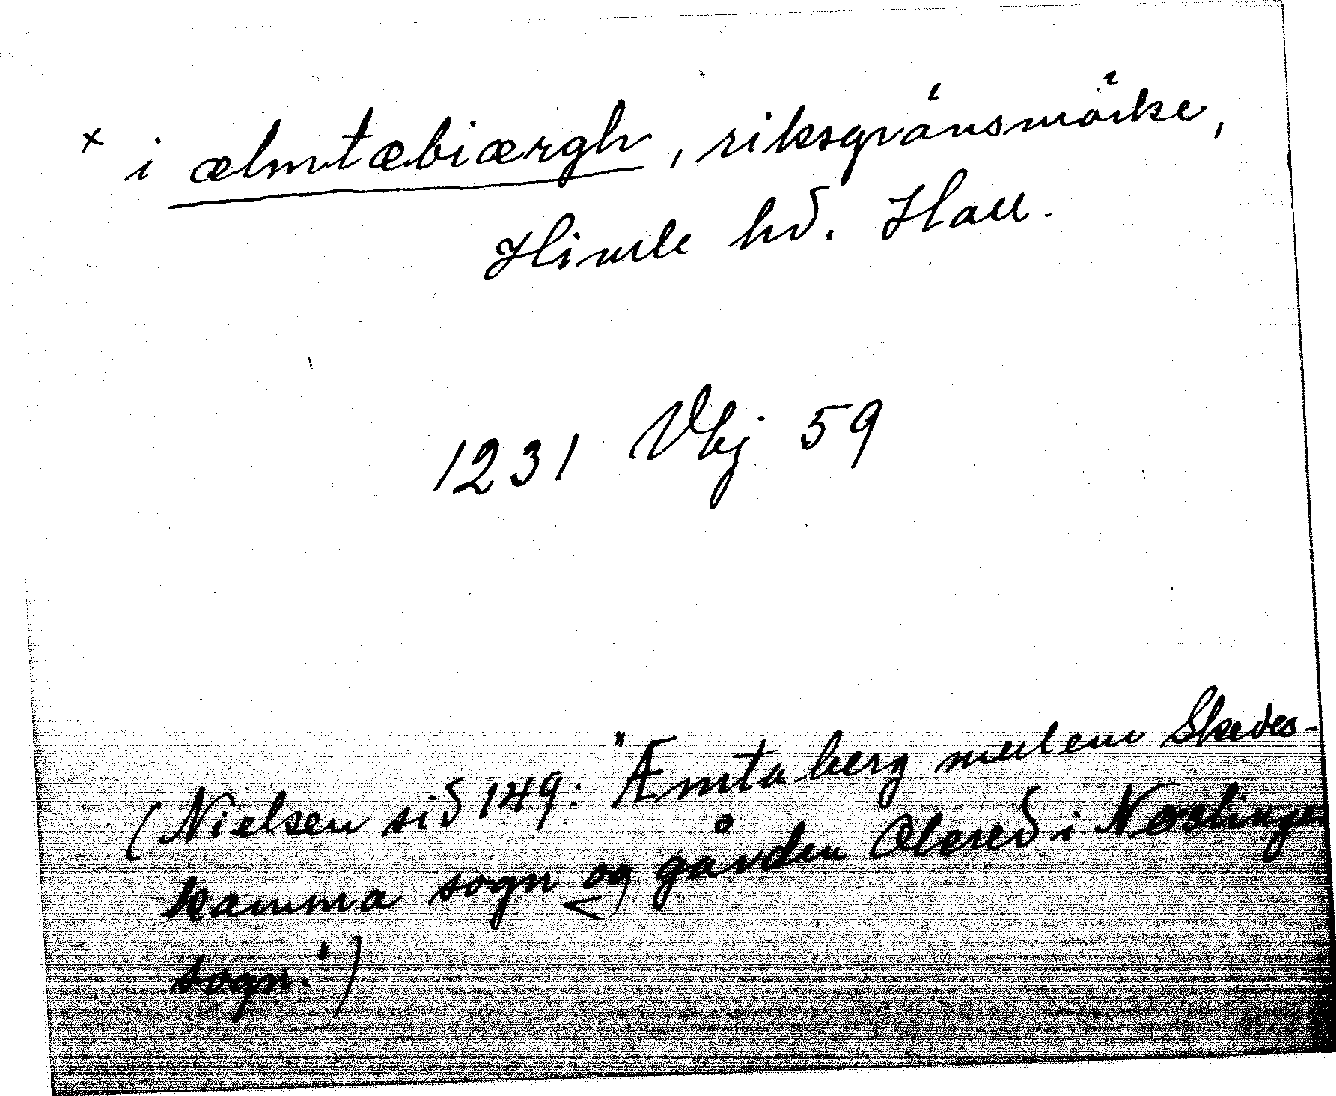 x i ælmtæbiærgh, riksgränsmärke,
Himle hd. Hall.
1231 Vbj 59
(Nielsen sid 149: "Æmtaberg mellem Skedes-
kamma sogn og gården Olered i Nösslinge
sogn.")